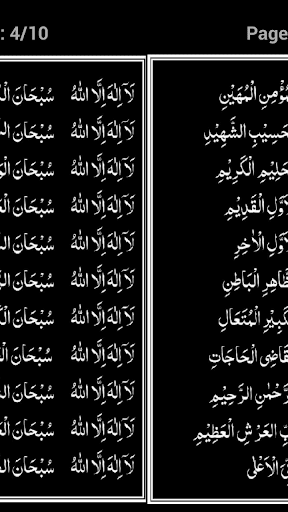 : 4/10
Page
لَآ اِلٰهَ اِلَّا اللّٰهُ سُبْحَانَ
لَآ اِلٰهَ اِلَّا اللّٰهُ سُبْحَانَ
لَآ اِلٰهَ اِلَّا اللّٰهُ سُبْحَانَ
لَآ اِلٰهَ اِلَّا اللّٰهُ سُبْحَانَ
لَآ اِلٰهَ اِلَّا اللّٰهُ سُبْحَانَ
لَآ اِلٰهَ اِلَّا اللّٰهُ سُبْحَانَ
لَآ اِلٰهَ اِلَّا اللّٰهُ سُبْحَانَ
لَآ اِلٰهَ اِلَّا اللّٰهُ سُبْحَانَ
لَآ اِلٰهَ اِلَّا اللّٰهُ سُبْحَانَ
لَآ اِلٰهَ اِلَّا اللّٰهُ سُبْحَانَ
لَآ اِلٰهَ اِلَّا اللّٰهُ سُبْحَانَ
ؤْمِنِ الْمُهَيْنِ
حَسِيْبِ الشَّهِيْدِ
حَلِيْمِ الْكَرِيْمِ
لْاَوَّلِ الْقَدِيْمِ
لْاَوَّلِ الْاٰخِرِ
ظَّاهِرِ الْبَاطِنِ
كَبِيْرِ الْمُتَعَالِ
قَاضِى الْحَاجَاتِ
رَّحْمٰنِ الرَّحِيْمِ
بِّ الْعَرْشِ الْعَظِيْمِ
بِّىَ الْاَعْلٰى